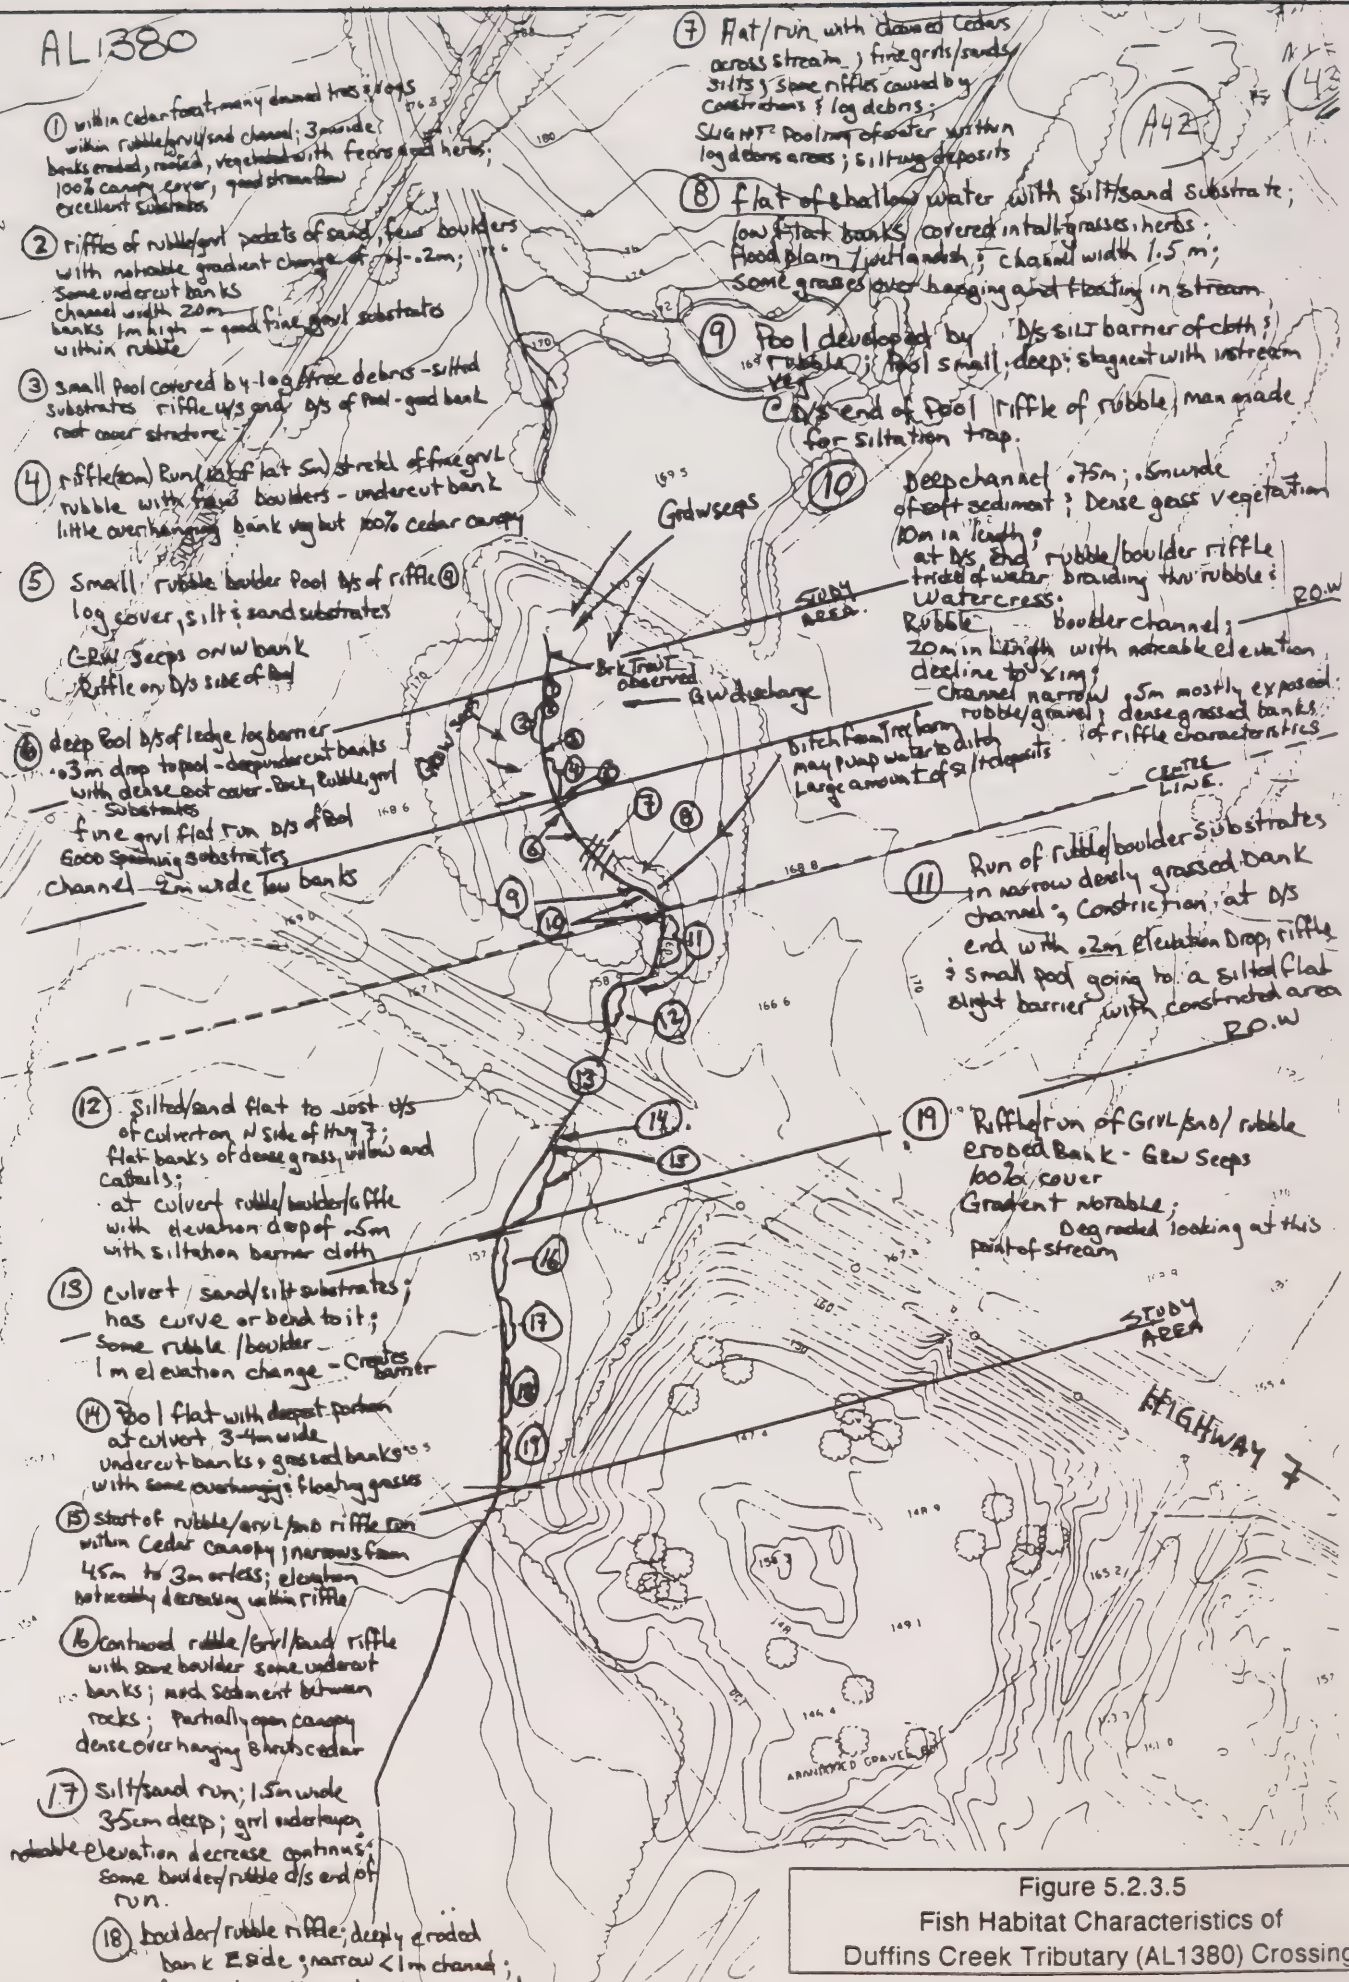 AL1380
① within Cedar forest, many downed trees & logs
within rubble/grvl/snd channel; 3m wide
banks eroded, rooted, vegetated with ferns and herbs;
100% canopy cover, good stream flow
excellent substrates
② riffles of rubble/grvl pockets of sand, few boulders
with noticable gradient change of .1-.2m;
Some undercut banks
channel width 20m
banks 1m high - good fine grvl substrates
within rubble
③ small Pool covered by log/tree debris - silted
substrates riffle u/s and D/s of Pool - good bank
root cover structure
④ riffle (20m) Run ( of last 5m) stretch of fine grvl
rubble with few boulders - undercut bank
little overhanging bank veg but 100% cedar canopy
⑤ Small rubble boulder Pool D/s of riffle ④
log cover, silt & sand substrates
GRW Seeps on W bank
Riffle on D/s side of Pool
⑥ deep Pool D/s of ledge log barrier
.3m drop to pool - deep undercut banks
with dense root cover - Rock, Rubble, grvl
Substrates
fine grvl flat run D/s of Pool
Good Spawning substrates
Channel 2m wide low banks
⑦ Flat/run with downed Cedars
across stream; fine grvls/sands/
silts; some riffles caused by
Constrictions & log debris;
SLIGHT Pooling of water within
log debris areas; silting deposits
⑧ flat of shallow water with silt/sand substrate;
low flat banks covered in tall grasses, herbs;
flood plain / wetlandish; channel width 1.5 m;
some grasses over hanging and floating in stream
⑨ Pool developed by D/s SILT barrier of cloth &
rubble; Pool small, deep; stagnent with instream
veg
@ D/s end of Pool riffle of rubble, man made
for siltation trap.
⑩ Deep channel .75m; .5m wide
of soft sediment; Dense grass vegetation
10m in length;
at D/s End rubble/boulder riffle
trickle of water braiding thru rubble &
Watercress.
Rubble boulder channel;
20m in length with noticable elevation
decline to xing;
Channel narrow .5m mostly exposed
rubble/gravel; dense grassed banks
of riffle characteristics
Grdw seeps
STUDY
AREA
R.O.W
Brk Trout
observed
GW discharge
GRDW Seeps
Ditch from Tree farm
may pump water to ditch
Large amount of silt deposits
CENTRE
LINE
⑪ Run of rubble/boulder Substrates
in narrow densly grassed bank
channel; Constriction at D/s
end with .2m Elevation Drop, riffle
& small pool going to a silted flat
slight barrier with constricted area
R.O.W
⑫ Silted/sand flat to just U/s
of culvert on N side of Hwy 7;
flat banks of dense grass, willow and
Cattails;
at culvert rubble/boulder/riffle
with elevation drop of .5m
with siltation barrier cloth
⑬ culvert sand/silt substrates;
has curve or bend to it;
Some rubble/boulder
1m elevation change - Creates
barrier
⑭ Pool flat with deepest portion
at culvert, 3-4m wide
undercut banks, grassed banks
with some overhanging & floating grasses
⑮ start of rubble/grvl/snd riffle run
within Cedar canopy; narrows from
4.5m to 3m or less; elevation
noticeably decreasing within riffle
⑯ continued rubble/Grvl/sand riffle
with some boulder some undercut
banks; much Sediment between
rocks; Partially open canopy
dense over hanging Shrubs cedar
⑰ Silt/sand run; 1.5m wide
3-5cm deep; grvl underlayer
notable elevation decrease continus;
some boulder/rubble d/s end of
run.
⑱ boulder/rubble riffle; deeply eroded
bank E side; narrow <1m channel;
⑲ Riffle/run of Grvl/snd/rubble
eroded Bank - GRW Seeps
100% cover
Gradient notable;
Degraded looking at this
point of stream
STUDY
AREA
HIGHWAY 7
A42
ABANDONED GRAVEL PIT
Figure 5.2.3.5
Fish Habitat Characteristics of
Duffins Creek Tributary (AL1380) Crossing